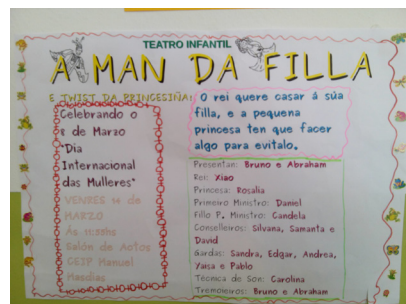 TEATRO INFANTIL
A MAN DA FILLA
E TWIST DA PRINCESIÑA:
Celebrando o
8 de Marzo
"Día
Internacional
das Mulleres"
VENRES 14 de
MARZO
Ás 11:55hs
Salón de Actos
CEIP Manuel
Masdías
O rei quere casar á súa
filla, e a pequena
princesa ten que facer
algo para evitalo.
Presentan: Bruno e Abraham
Rei: Xiao
Princesa: Rosalía
Primeiro Ministro: Daniel
Fillo P. Ministro: Candela
Conselleiros: Silvana, Samanta e
David
Gardas: Sandra, Edgar, Andrea,
Yaisa e Pablo
Técnica de Son: Carolina
Tremoieiros: Bruno e Abraham